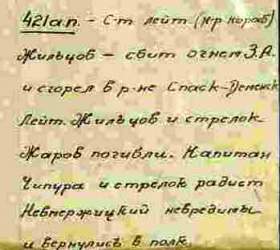 421 ап. - С-т. лейт (н-р кораб)
Жильцов - сбит огнем З.А.
и сгорел в р-не Спаск-Деменск
Лейт. Жильцов и стрелок
Жаров погибли. Капитан
Чипура и стрелок радист
Невмержицкий невредимы
и вернулись в полк.